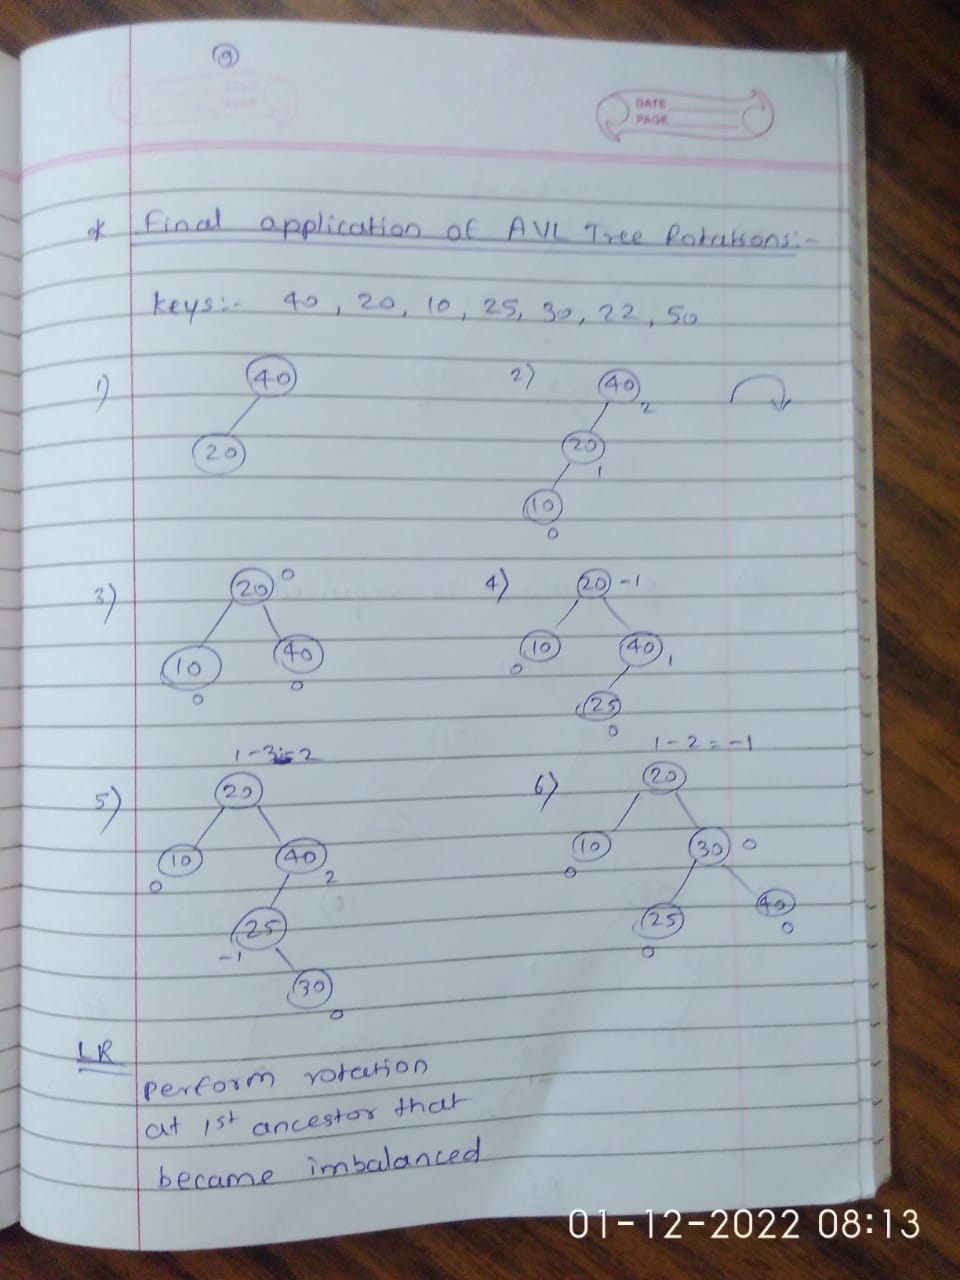 9
DATE
PAGE
* Final application of AVL Tree Rotations:-
keys:- 40, 20, 10, 25, 30, 22, 50
1)
40
20
2)
40
2
20
1
10
0
3)
20 0
10
0
40
0
4)
20 -1
10
0
40
1
25
0
5)
1-3=-2
20
10
0
40
2
25
-1
30
0
6)
1-2=-1
20
10
0
30 0
25
0
40
0
LR
perform rotation
at 1st ancestor that
became imbalanced
01-12-2022 08:13